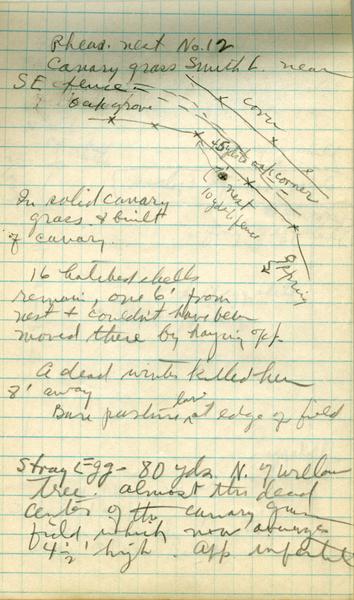 Pheas. nest No. 12
Canary grass Smith L. near
SE fence =
oak grove
corn
45 yds to oak corner
nest
10 yds fence
spring
In solid canary
grass & built
of canary.
16 hatched shells
remain, one 6' from
nest & couldn't have been
moved there by haying opr.
A dead winter killed hen
8' away
Bare pasture at edge of field
Stray Egg - 80 yds N. of willow
tree. almost the dead
center of the canary grass
field which now averages
4½' high. App infertile